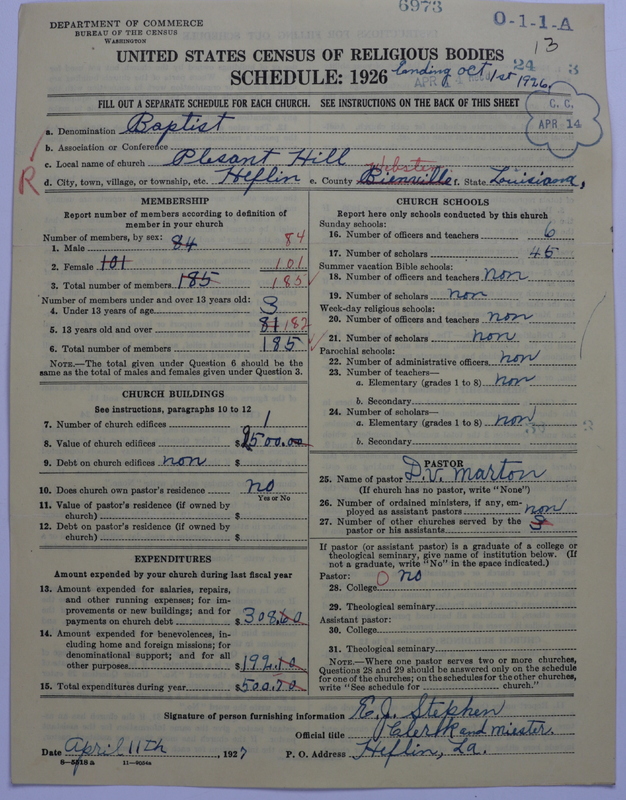 6973
DEPARTMENT OF COMMERCE
BUREAU OF THE CENSUS
WASHINGTON
O-1-1-A
13
UNITED STATES CENSUS OF RELIGIOUS BODIES
SCHEDULE: 1926 ending oct 1st 1926.
24 3
FILL OUT A SEPARATE SCHEDULE FOR EACH CHURCH. SEE INSTRUCTIONS ON THE BACK OF THIS SHEET
C. C.
APR 14
a. Denomination Baptist
b. Association or Conference
c. Local name of church Plesant Hill
Webster
R
d. City, town, village, or township, etc. Heflin e. County Bienville f. State Louisiana,
MEMBERSHIP
Report number of members according to definition of
member in your church
Number of members, by sex:
1. Male 84 84
2. Female 101 101
3. Total number of members 185 185
Number of members under and over 13 years old:
4. Under 13 years of age 3
5. 13 years old and over 81 182
6. Total number of members 185
NOTE.—The total given under Question 6 should be the
same as the total of males and females given under Question 3.
CHURCH BUILDINGS
See instructions, paragraphs 10 to 12
7. Number of church edifices 1
8. Value of church edifices $2500.00
9. Debt on church edifices non $
10. Does church own pastor's residence no
Yes or No
11. Value of pastor's residence (if owned by
church) $
12. Debt on pastor's residence (if owned by
church) $
EXPENDITURES
Amount expended by your church during last fiscal year
13. Amount expended for salaries, repairs,
and other running expenses; for im-
provements or new buildings; and for
payments on church debt $308.60
14. Amount expended for benevolences, in-
cluding home and foreign missions; for
denominational support; and for all
other purposes $192.10
15. Total expenditures during year $500.70
CHURCH SCHOOLS
Report here only schools conducted by this church
Sunday schools:
16. Number of officers and teachers 6
17. Number of scholars 45
Summer vacation Bible schools:
18. Number of officers and teachers non
19. Number of scholars non
Week-day religious schools:
20. Number of officers and teachers non
21. Number of scholars non
Parochial schools:
22. Number of administrative officers non
23. Number of teachers—
a. Elementary (grades 1 to 8) non
b. Secondary
24. Number of scholars—
a. Elementary (grades 1 to 8) non
b. Secondary
PASTOR
25. Name of pastor D.V. Marton
(If church has no pastor, write "None")
26. Number of ordained ministers, if any, em-
ployed as assistant pastors non
27. Number of other churches served by the
pastor or his assistants 3
If pastor (or assistant pastor) is a graduate of a college or
theological seminary, give name of institution below. (If
not a graduate, write "No" in the space indicated.)
Pastor:
28. College O no
29. Theological seminary
Assistant pastor:
30. College
31. Theological seminary
NOTE.—Where one pastor serves two or more churches,
Questions 28 and 29 should be answered only on the schedule
for one of the churches; on the schedules for the other churches,
write "See schedule for church."
Signature of person furnishing information E.J. Stephen
Official title Clerk and miester.
Date April 11th, 1927 P. O. Address Heflin, La.
8—5518 a 11—9054a